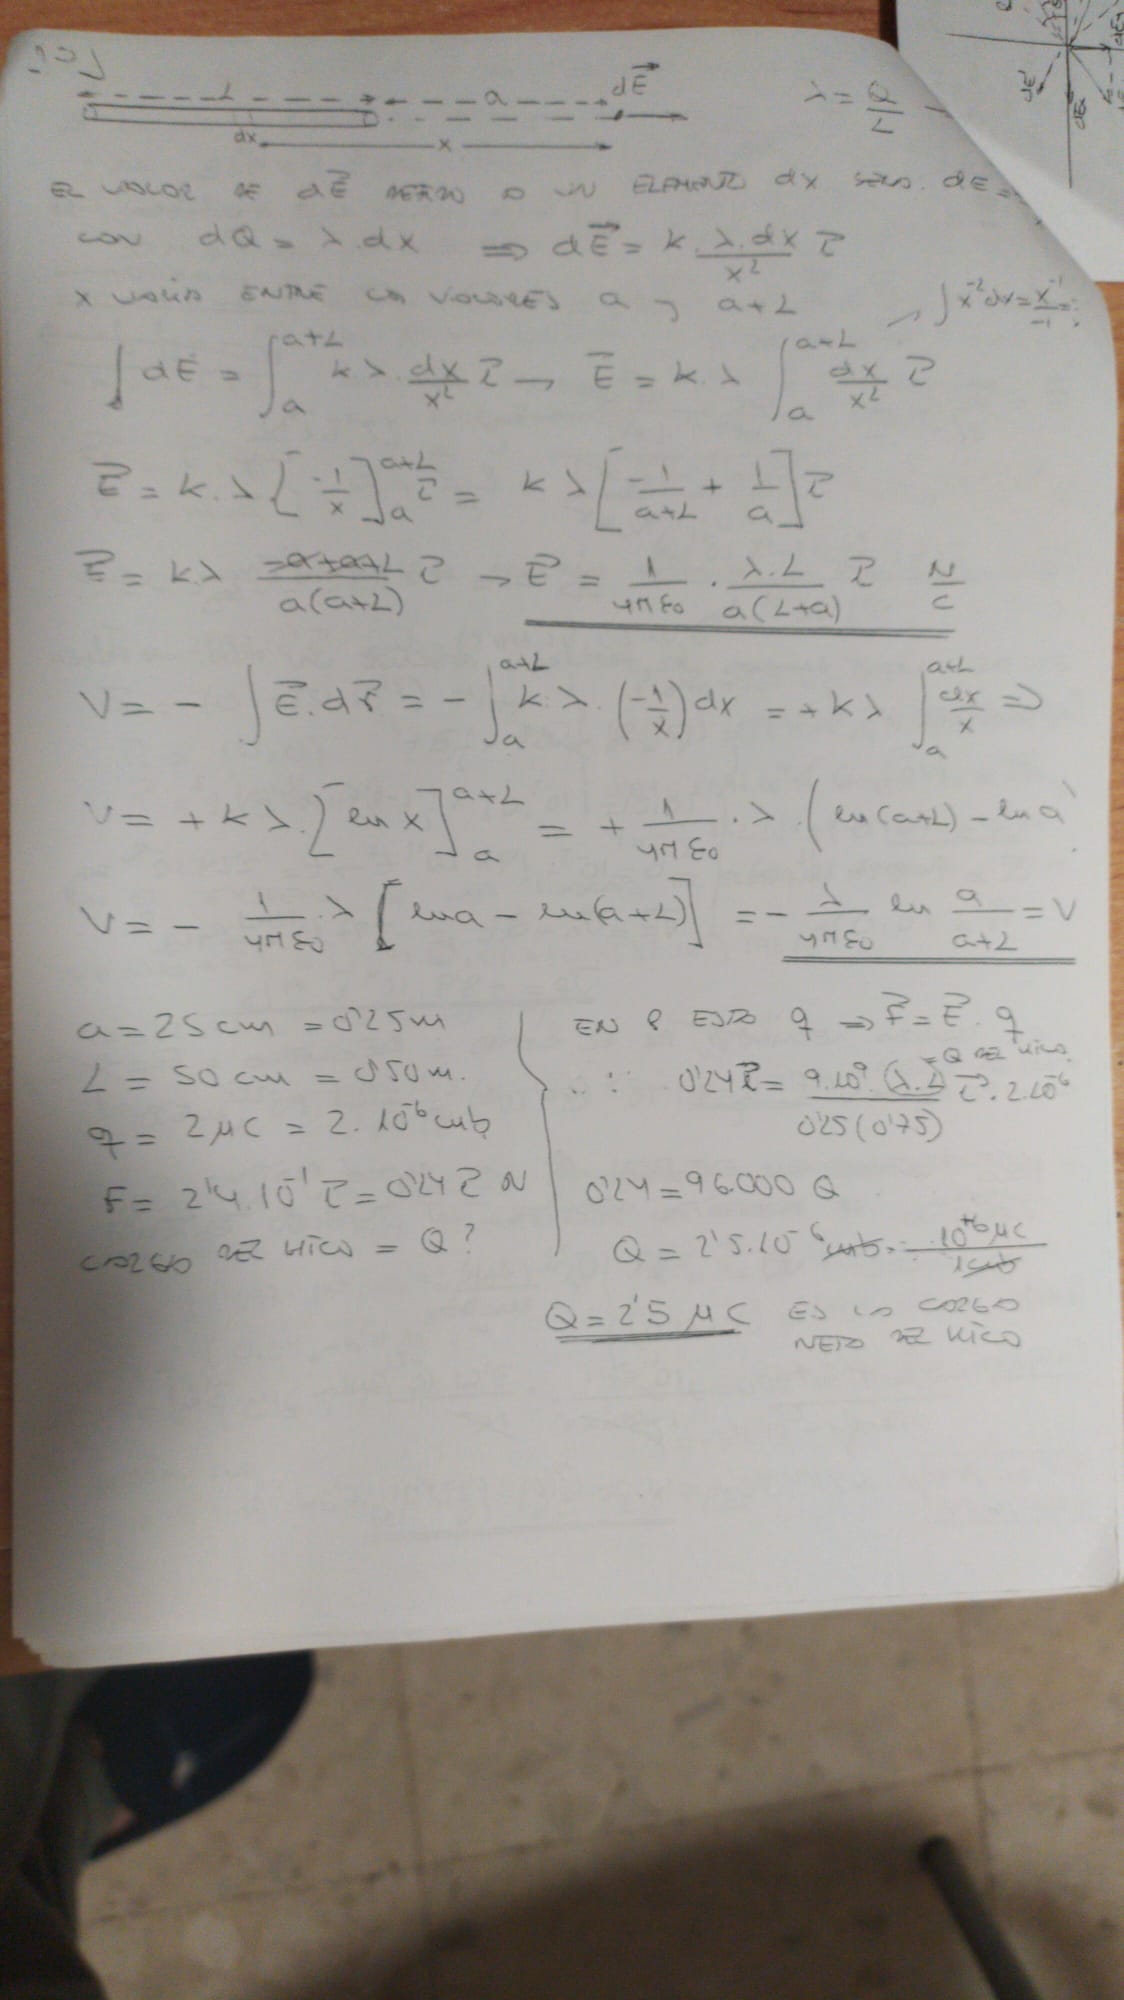 L a dE⃗
dx x
λ = Q/L
EL VALOR DE dE⃗ DEBIDO A UN ELEMENTO dx SERÁ. dE =
CON dQ = λ.dx ⇒ dE⃗ = k. λ.dx/x² i⃗
x VARÍA ENTRE LOS VALORES a y a+L
∫x⁻²dx = x⁻¹/-1 =
∫dE = ∫ₐᵃ⁺ᴸ k.λ. dx/x² i⃗ → E⃗ = k.λ ∫ₐᵃ⁺ᴸ dx/x² i⃗
E⃗ = k.λ [-1/x]ₐᵃ⁺ᴸ i⃗ = k λ [-1/(a+L) + 1/a] i⃗
E⃗ = k.λ (-a+a+L)/(a(a+L)) i⃗ → E⃗ = 1/(4πε₀) . λ.L/(a(L+a)) i⃗ N/C
V = - ∫E⃗.dr⃗ = - ∫ₐᵃ⁺ᴸ k.λ. (-1/x) dx = + k λ ∫ₐᵃ⁺ᴸ dx/x ⇒
V = + k λ. [ln x]ₐᵃ⁺ᴸ = + 1/(4πε₀) . λ. (ln(a+L) - ln a
V = - 1/(4πε₀) . λ [ln a - ln(a+L)] = - λ/(4πε₀) ln a/(a+L) = V
a = 25 cm = 0'25 m
L = 50 cm = 0'50 m.
q = 2 μC = 2. 10⁻⁶ culb
F = 2'4. 10⁻¹ i⃗ = 0'24 i⃗ N
CARGA DEL HILO = Q?
EN P ESTA q ⇒ F⃗ = E⃗. q
= Q DEL HILO.
∴ 0'24 i⃗ = 9.10⁹. (λ.L)/(0'25 (0'75)) i⃗. 2.10⁻⁶
0'24 = 96.000 Q
Q = 2'5.10⁻⁶ culb. 10⁺⁶ μC/1 culb
Q = 2'5 μC ES LA CARGA
NETA DEL HILO